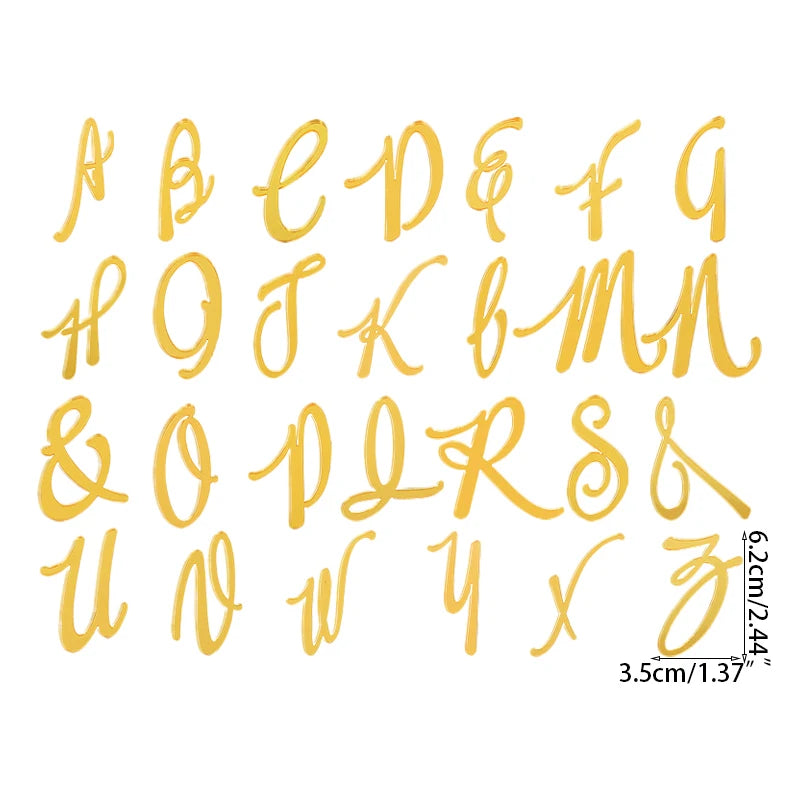 A B C D E F G
H J K L M N
& O P Q R S
U V W Y X Z
6.2cm/2.44"
3.5cm/1.37"